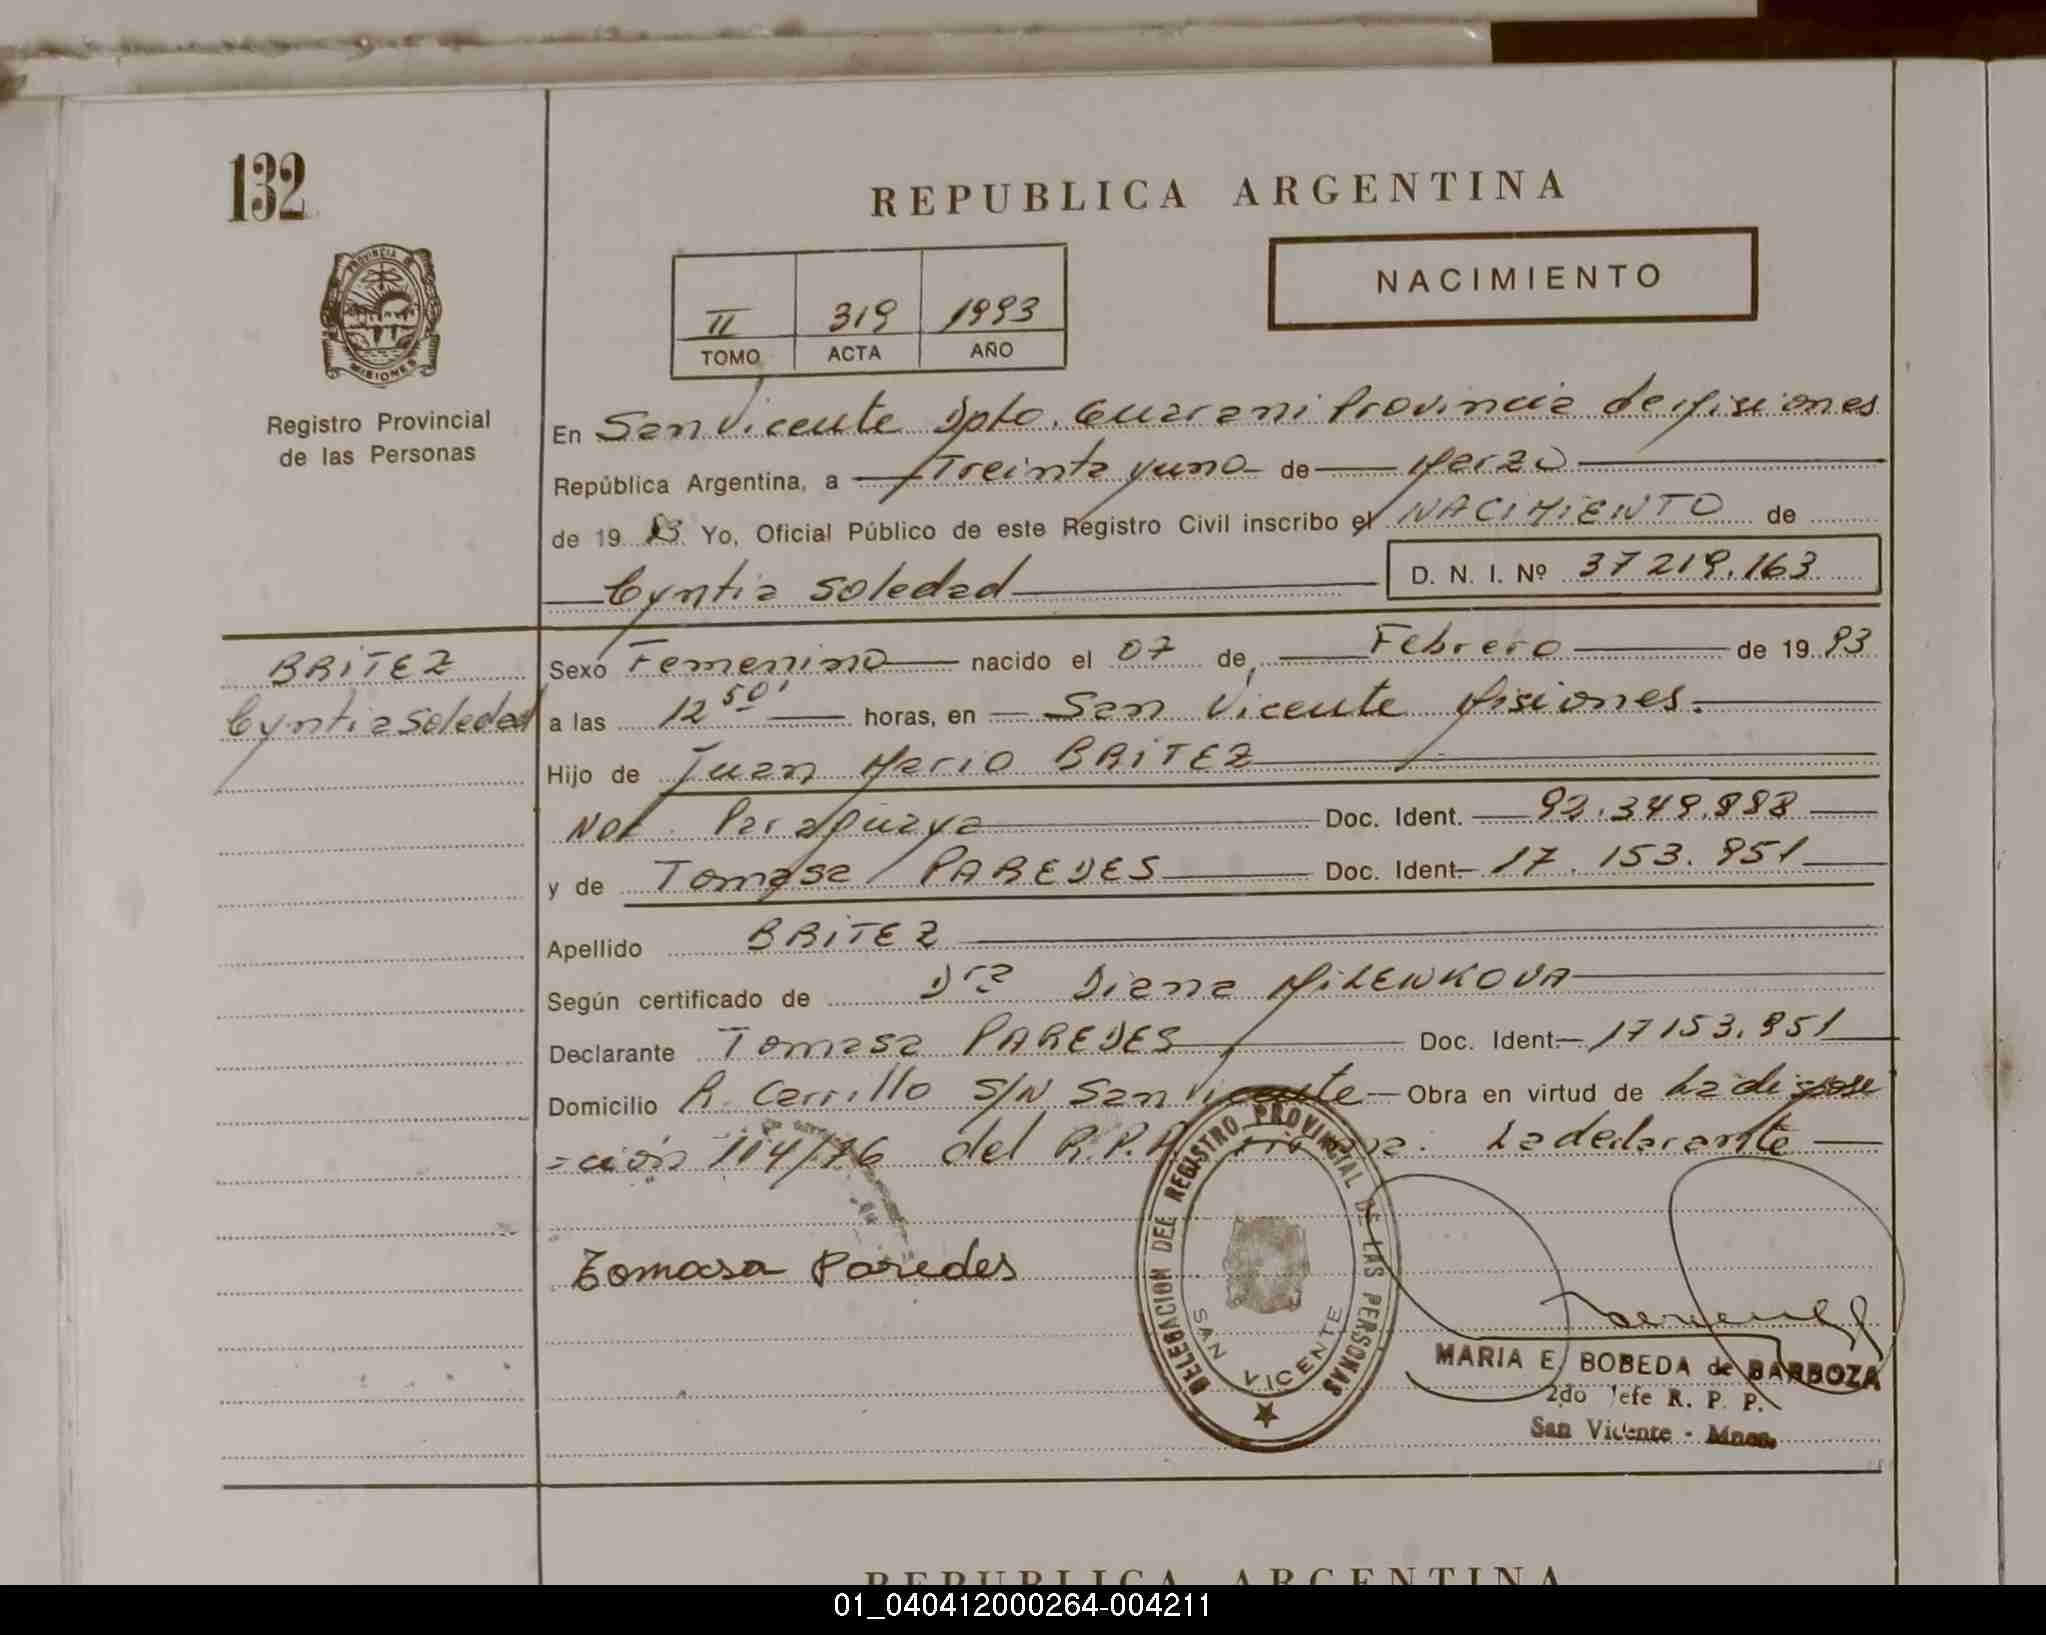 132
REPUBLICA ARGENTINA
NACIMIENTO
II 319 1993
TOMO ACTA AÑO
PROVINCIA DE
MISIONES
Registro Provincial
de las Personas
En San Vicente Dpto. Guarani Provincia de Misiones
República Argentina, a Treinta y uno de Marzo
de 19 93 Yo, Oficial Público de este Registro Civil inscribo el NACIMIENTO de
Cyntia Soledad D. N. I. Nº 37219.163
BRITEZ
Cyntia Soledad
Sexo Femenino nacido el 07 de Febrero de 19 93
a las 12 50' horas, en San Vicente Misiones.
Hijo de Juan Mario BRITEZ
Nac. Paraguaya Doc. Ident. 92.349.888
y de Tomasa PAREDES Doc. Ident 17.153.951
Apellido BRITEZ
Según certificado de Dra Diana MILENKOVA
Declarante Tomasa PAREDES Doc. Ident. 17153.951
Domicilio R. Carrillo S/N San Vicente Obra en virtud de La dispose
=ción 114/76 del R.P.P. La declarante
Tomasa Paredes
DELEGACION DEL REGISTRO PROVINCIAL DE LAS PERSONAS
SAN VICENTE
MARIA E. BOBEDA de BARBOZA
2do Jefe R. P. P.
San Vicente - Mnes.
REPUBLICA ARGENTINA
01_040412000264-004211